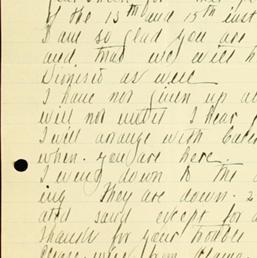 of the 13th and 15th inst
I am so glad you are
and that we will h
as well
I have not given up a
will not I hear
I will arrange with
when you are here.
I went down to the
ing They are down. 2
and said except for a
thanks for your trouble